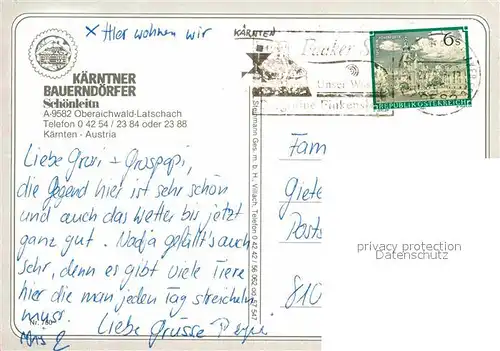 x Hier wohnen wir
KÄRNTEN
6s
REPUBLIK ÖSTERREICH
KÄRNTNER
BAUERNDÖRFER
Schönleitn
A-9582 Oberaichwald-Latschach
Telefon 0 42 54 / 23 84 oder 23 88
Kärnten - Austria
Liebe Groxi + Grospapi,
die Gegend hier ist sehr schön
und auch das Wetter bis jetzt
ganz gut. Nadja gefällt's auch
sehr, denn es gibt viele Tiere
hier die man jeden Tag streicheln
muss. Liebe Grüsse
Nr. 780
Ges. m. b. H., Villach, Telefon 0 42 42 / 56 0 62 od 57 547
Fam
Giete
Posts
810
privacy protection
Datenschutz